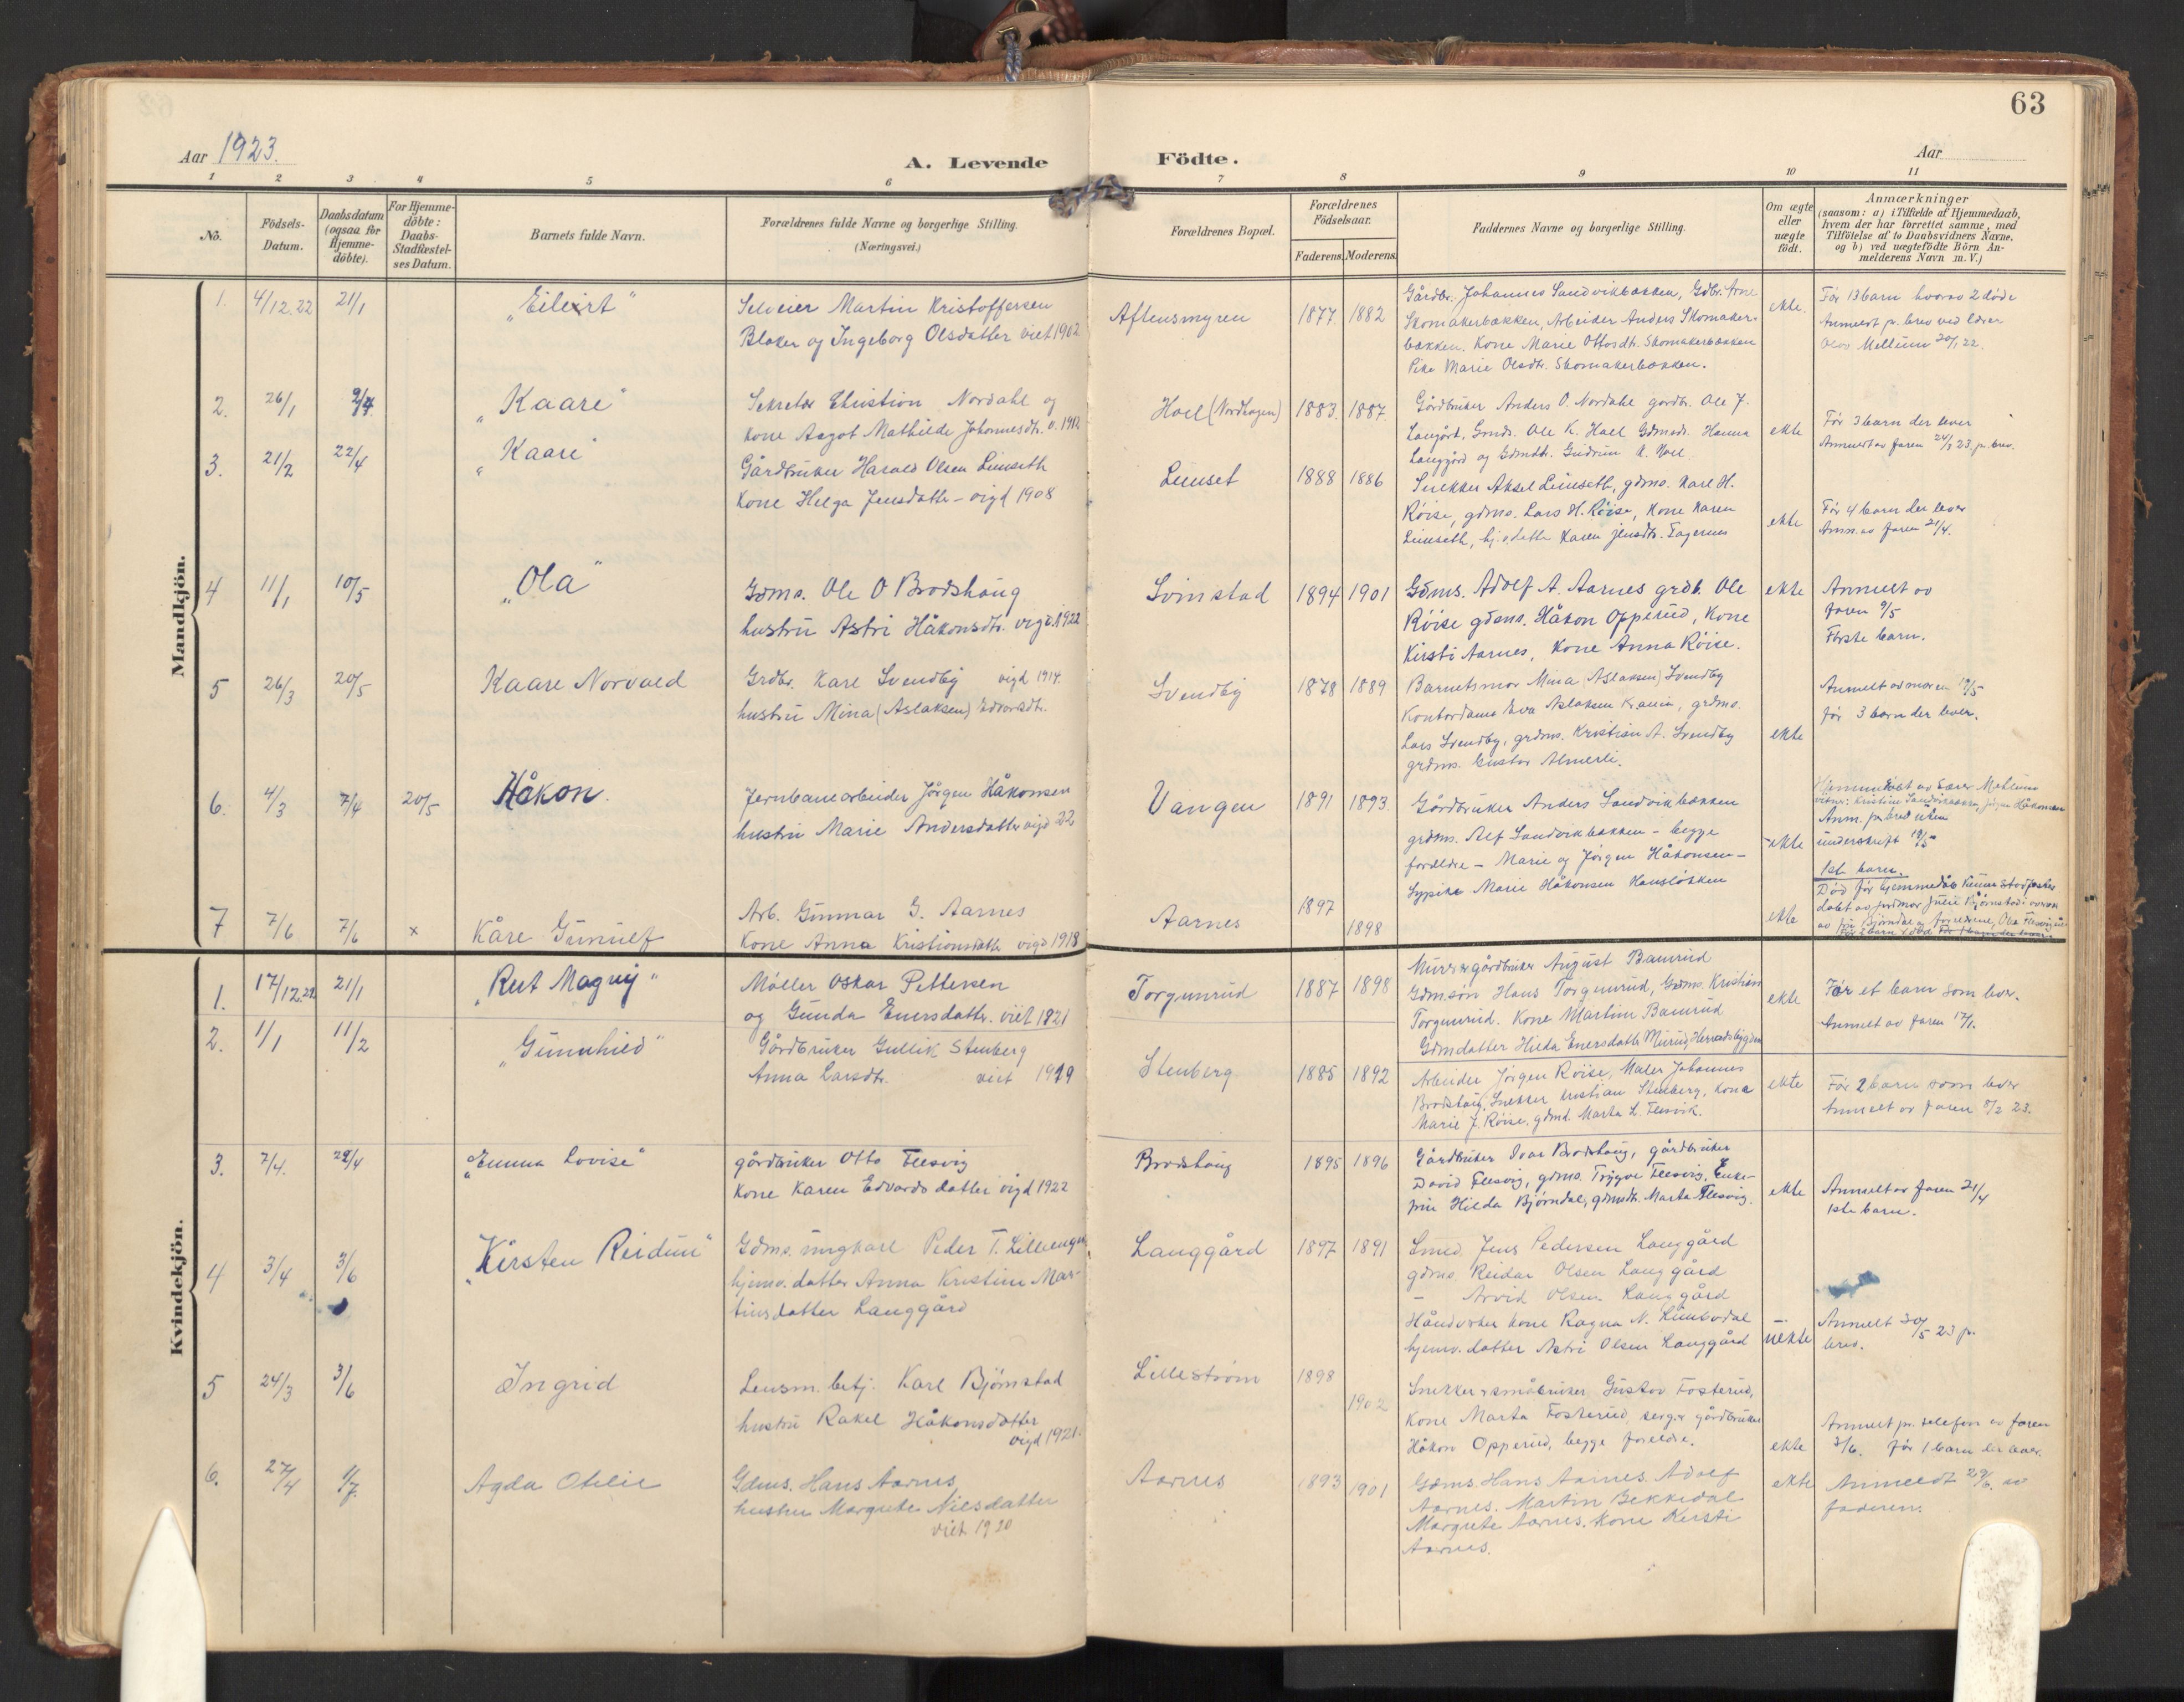 63
Aar 1923.
A. Levende Födte.
Aar
1 2 3 4 5 6 7 8 9 10 11
No.
Födsels-
Datum.
Daabsdatum
(ogsaa for
Hjemme-
döbte).
For Hjemme-
döbte:
Daabs-
Stadfæstel-
ses Datum.
Barnets fulde Navn.
Forældrenes fulde Navne og borgerlige Stilling.
(Næringsvei.)
Forældrenes Bopæl.
Forældrenes
Födselsaar.
Faderens. Moderens.
Faddernes Navne og borgerlige Stilling.
Om ægte
eller
uægte
födt.
Anmærkninger
(saasom: a) i Tilfælde af Hjemmedaab,
hvem der har forrettet samme, med
Tilföielse af to Daabsvidners Navne,
og b) ved uægtefödte Börn An-
melderens Navn m. V.)
Mandkjön.
1. 4/12.22 21/1 "Eilert"
Selveier Martin Kristoffersen
Blaker og Ingeborg Olsdatter viet 1902
Aftensmyren 1877. 1882
Gårdbr. Johannes Sandvikbakken, Gdbr. Arne
Skomakerbakken, Arbeider Anders Skomaker-
bakken. Kone Marie Ottosdtr. Skomakerbakken
Pike Marie Olsdtr. Skomakerbakken.
ekte.
Før 13 barn hvorav 2 døde
Anmeldt pr. brev ved lærer
Olav Mellum 20/1 22.
2. 26/1 "Kaare"
Sekretær Christian Nordahl og
kone Aagot Mathilde Johannesdtr. v. 1912
Hoel (Nordhagen) 1883. 1887.
Gårdbruker Anders O. Nordahl gårdbr. Ole J.
Langård, Gmds. Ole K. Hoel Gdmds. Hanna
Langgård og Gdmdtr. Gudrun K. Hoel.
ekte
Før 3 barn der lever
Anmeldt av faren 24/3 23. p. brev.
3. 21/2 22/4 "Kaare"
Gårdbruker Harald Olsen Linseth
Kone Helga Jensdatter - vigd 1908
Linset 1888 1886
Snekker Aksel Linseth, gdms. Karl H.
Røise, gdms. Lars H. Røise, Kone Karen
Linseth, hj.v. datter Karen Jensdtr. Fagernes
ekte
Før 4 barn der lever
Anm. av faren 21/4.
4 11/1 10/5 "Ola"
Gdms. Ole O Brodshaug
hustru Astri Håkonsdtr. vigd. 1922
Svinstad 1894 1901
Gdms. Adolf A. Aarnes grdb. Ole
Røise gdms. Håkon Opperud, Kone
Kirsti Aarnes, Kone Anna Røise.
ekte
Anmelt av
faren 9/5
Første barn.
5 26/3 20/5 Kaare Norvald
Grdbr. Karl Svendby vigd 1914.
hustru Mina (Aslaksen) Edvardsdtr.
Svendby 1878 1889
Barnets mor Mina (Aslaksen) Svendby
Kontordame Eva Aslaksen Krania, grdms.
Lars Svendby, grdms. Kristian A. Svendby
grdms. Gustav Almerli.
ekte
Anmelt av moren 19/5
før 3 barn der lever.
6. 4/3 7/4 20/5 Håkon.
Jernbanearbeider Jørgen Håkonsen
hustru Marie Andersdatter vigd 22
Vangen 1891 1893.
Gårdbruker Anders Sandvikbakken
grdms. Alf Sandvikbakken - begge
foreldre - Marie og Jørgen Håkonsen -
Sypike Marie Håkonsen Hansløkken
ekte
Hjemmedøbt av Lærer Mehlum
vitner: Kristine Sandvikbakken, Jørgen Håkonsen
Anm. pr. brev uten
underskrift 19/5
1ste barn.
7 7/6 7/6 x Kåre Gunulf
Arb. Gunnar G. Aarnes
Kone Anna Kristiansdatter vigd 1918
Aarnes 1897 1898
ekte
Død før hjemmedåb kunne stadfestes
døbt av jordmor Julie Bjørnstad
Kvindekjön.
1. 17/12.22 21/1 "Rut Magny"
Møller Oskar Pettersen
og Gunda Enersdatter. viet 1921
Torgunrud 1887 1898
Murer gårdbruker August Bamrud
Gdmsøn Hans Torgunrud, Gdms. Kristian
Torgunrud. Kone Martine Bamrud
Gdmdatter Hilda Enersdatter Murud, Herredsbygden
ekte
Før et barn som lever.
Anmelt av faren 17/1.
2. 1/1 11/2 "Gunnhild"
Gårdbruker Gullik Stenberg
Anna Larsdtr. viet 1919
Stenberg 1885 1892
Arbeider Jørgen Røise, Maler Johannes
Brodshaug, Snekker Kristian Stenberg, Kona
Marie J. Røise, gdmd. Marta L. Flesvik.
ekte
Før 2 barn som lever
Anmelt av faren 8/2 23.
3. 7/4. 22/4 "Emma Lovise"
gårdbruker Otto Flesvig
Kone Karen Edvardsdatter vigd 1922
Brodshaug 1895 1896
Gårdbruker Ivar Brodshaug, gårdbruker
David Flesvig, gdms. Trygve Flesvig, Enke-
fru Hilda Bjørndal, gdmdtr. Marta Flesvig.
ekte
Anmelt av faren 21/4
1ste barn.
4 3/4 3/6 "Kirsten Reidun"
Gdms. ungkarl Peder T. Lilleengen
hjemv. datter Anna Kristine Mar-
tinsdatter Langgård
Langgård 1897 1891
Smed. Jens Pedersen Langgård
gdms. Reidar Olsen Langgård
- Arvid Olsen Langgård
Håndverker kone Ragna N. Limbodal
hjemv. datter Astri Olsen Langgård
uekte
Anmelt 30/5 23 pr.
brev.
5 24/3 3/6 Ingrid
Lensm. betj. Karl Bjørnstad
hustru Rakel Håkonsdatter
vigd 1921.
Lillestrøm 1898 1902
Snekker småbruker Gustav Fosterud,
Kone Marta Fosterud, gårdbruker
Håkon Opperud, begge foreldre.
ekte
Anmelt pr. telefon av faren
3/6. før 1 barn der lever.
6. 27/4 1/7. Agda Otelie
Gdms. Hans Aarnes
hustru Margrete Nilsdatter
viet 1920
Aarnes 1893 1901
Gdms. Hans Aarnes. Adolf
Aarnes. Martin Bekkedal
Margrete Aarnes. Kone Kirsti
Aarnes.
ekte
Anmeldt 29/6. av
faderen.